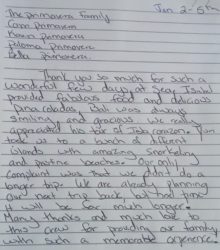 Jan 2-5th
The Primavera Family
Cam Primavera
Karen Primavera
Paloma Primavera
Bella Primavera
Thank you so much for such a
wonderful few days at sea! Isabel
provided fabulous food and delicious
was always
smiling and gracious. We really
appreciated his
took us to a bunch of different
islands with amazing snorkeling
and pristine beaches. Our only
complaint was that we didn't do a
longer trip. We are already planning
our next trip back, but next time
it will be for much longer.
Many thanks and much love to
this crew for providing our family
with such memorable experience